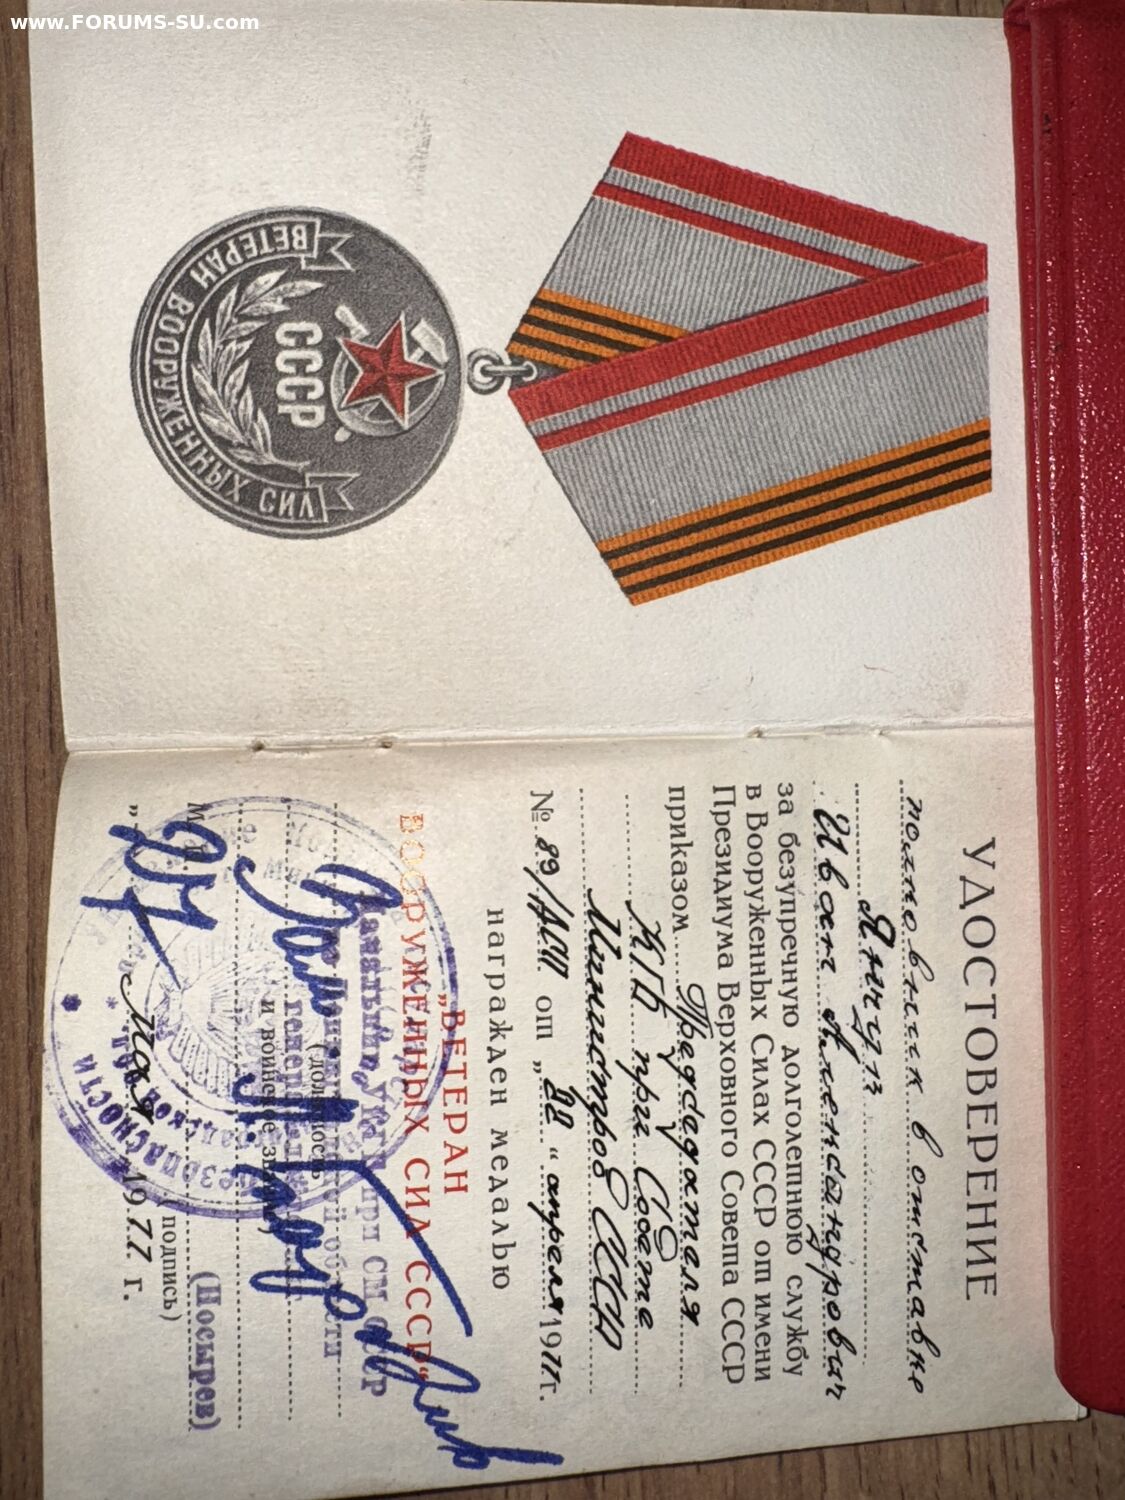 www.FORUMS-SU.com
ВЕТЕРАН ВООРУЖЕННЫХ СИЛ
СССР
УДОСТОВЕРЕНИЕ
полковник в отставке
Янчук
Иван Александрович
за безупречную долголетнюю службу
в Вооруженных Силах СССР от имени
Президиума Верховного Совета СССР
приказом Председателя
КГБ при Совете
Министров СССР
№ 89/АСП от „22“ апреля 1977 г.
награжден медалью
„ВЕТЕРАН
ВООРУЖЕННЫХ СИЛ СССР“
при СМ СССР
(должность
и воинское звание)
(Носырев)
(подпись)
мая 1977 г.